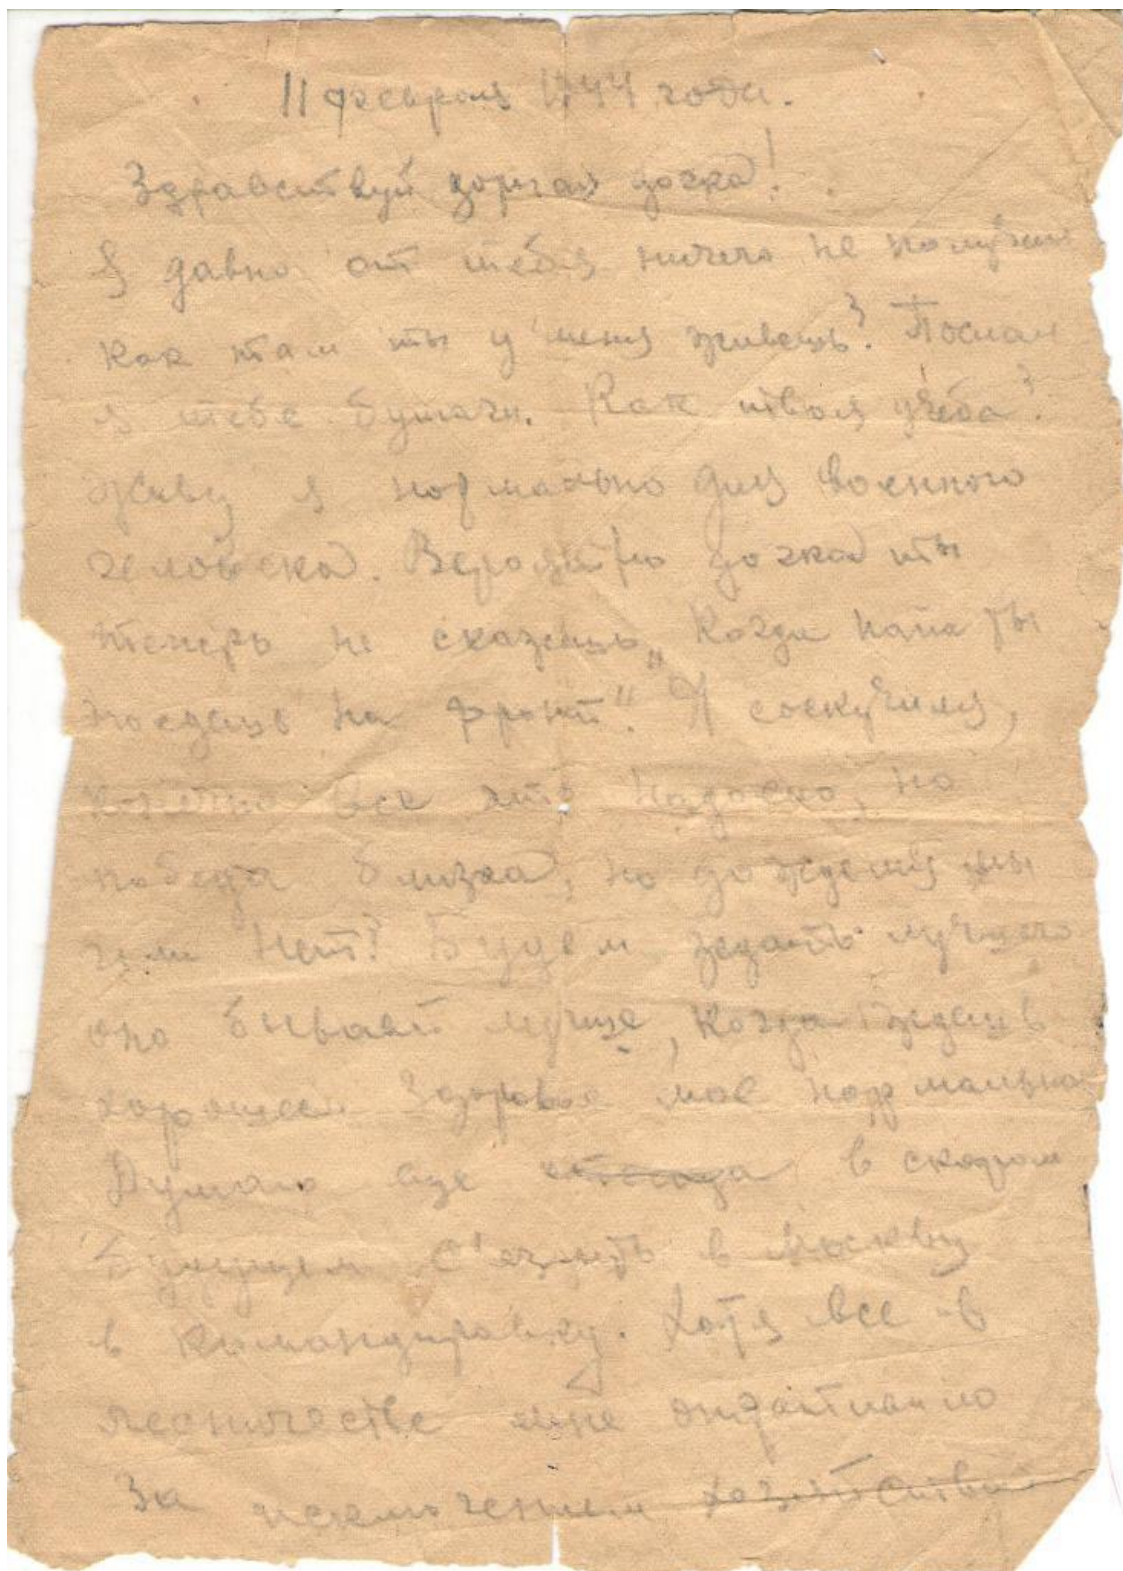 11 февраля 1944 года.
Здравствуй дорогая дочка!
Я давно от тебя ничего не получал
как там ты у меня живешь? Послал
я тебе бумаги. Как твоя учеба?
Живу я нормально для военного
человека. Вероятно дочка ты
теперь не скажешь „Когда папа ты
поедешь на фронт". Я соскучился,
конечно все это надоело, но
победа близка, но дождемся мы
или нет? Будем ждать лучшего
оно бывает лучше, когда ждешь
хорошее. Здоровье мое нормально
Думаю еще в скором
будущем с'ездить в Москву
в командировку. Хотя все в
лесничестве мне
За исключением хозяйства